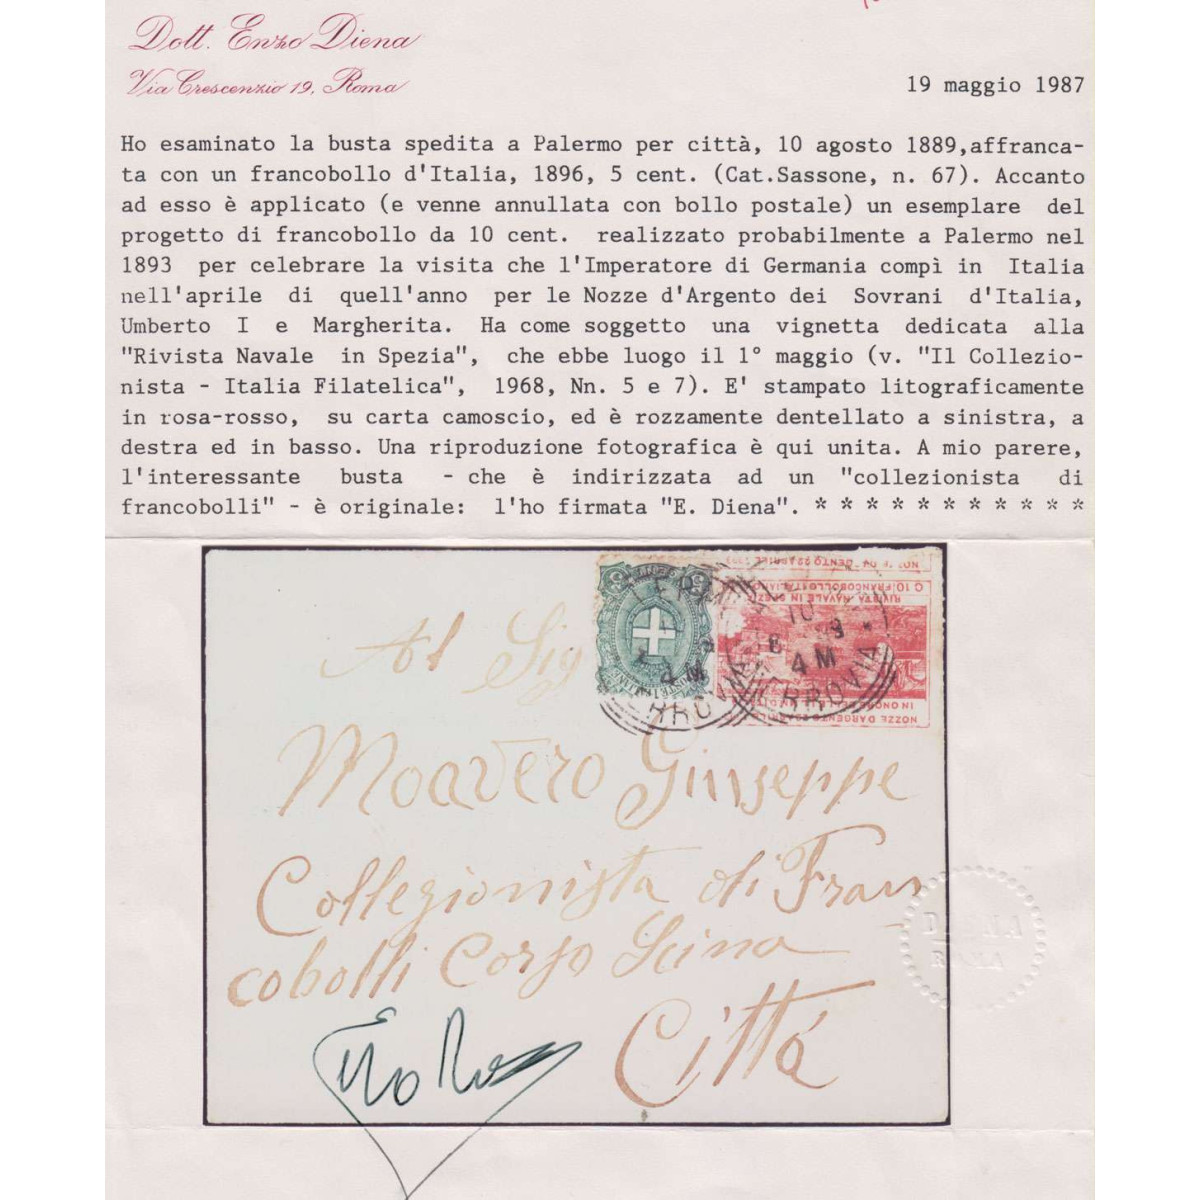 Dott. Enzo Diena
Via Crescenzio 19, Roma
19 maggio 1987
Ho esaminato la busta spedita a Palermo per città, 10 agosto 1889,affranca-
ta con un francobollo d'Italia, 1896, 5 cent. (Cat.Sassone, n. 67). Accanto
ad esso è applicato (e venne annullata con bollo postale) un esemplare del
progetto di francobollo da 10 cent. realizzato probabilmente a Palermo nel
1893 per celebrare la visita che l'Imperatore di Germania compì in Italia
nell'aprile di quell'anno per le Nozze d'Argento dei Sovrani d'Italia,
Umberto I e Margherita. Ha come soggetto una vignetta dedicata alla
"Rivista Navale in Spezia", che ebbe luogo il 1° maggio (v. "Il Collezio-
nista - Italia Filatelica", 1968, Nn. 5 e 7). E' stampato litograficamente
in rosa-rosso, su carta camoscio, ed è rozzamente dentellato a sinistra, a
destra ed in basso. Una riproduzione fotografica è qui unita. A mio parere,
l'interessante busta - che è indirizzata ad un "collezionista di
francobolli" - è originale: l'ho firmata "E. Diena". * * * * * * * * * * *
C 10 FRANCOBOLLO
RIVISTA NAVALE IN SPEZIA
4 AM
4 AM
NOZZE D'ARGENTO 22 APRILE
IN ONORE
Al Sig
Moavero Giuseppe
Collezionista di Fran
cobolli Corso Scina
Città